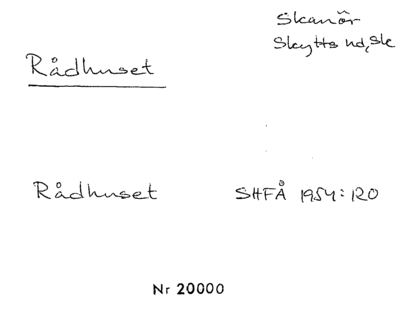 Skanör
Skytts hd, Sk
Rådhuset
Rådhuset SHFÅ 1954:120
Nr 20000